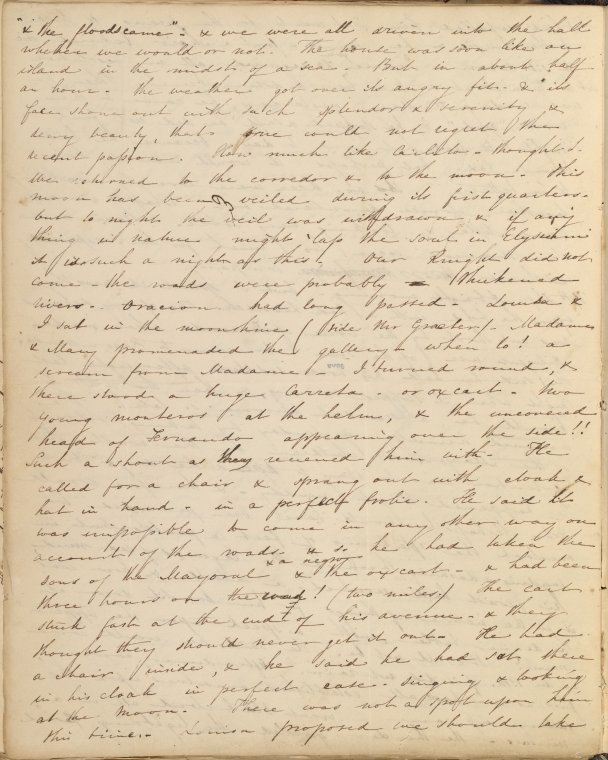 "& the floods came" - & we were all driven into the hall
whether we would or not. The house was soon like an
island in the midst of a sea - But in about half
an hour - the weather got over its angry fit - & its
face shone out with such splendor & serenity &
dewy beauty, that one could not regret the
recent passion. How much like Carlito - thought I -
We returned to the corredor & to the moon - This
moon has been veiled during its first quarters -
but to night the veil was withdrawn & if any
thing in nature might lap the soul in Elysium
it is such a night as this. Our Knight did not
come - the roads were probably thickened
rivers - Oracion had long passed - Louisa &
I sat in the moonshine (vide Mr Graeter) - Madame
& Mary promenaded the gallery - when lo! a
scream from Madame - I turned round, &
there stood a huge Carreta - or oxcart - two
young monteros at the helm, & the uncovered
head of Fernando appearing over the side!!
Such a shout as they received him with - He
called for a chair & sprang out with cloak &
hat in hand - in a perfect frolic. He said it
was impossible to come in any other way on
account of the roads - & so he had taken the
sons of the Mayoral & a negro & the oxcart - & had been
three hours on the road! (two miles) The cart
stuck fast at the end of his avenue - & they
thought they should never get it out - He had
a chair inside, & he said he had sat there
in his cloak in perfect ease - singing & looking
at the moon - There was not a spot upon him
this time - Louisa proposed we should take